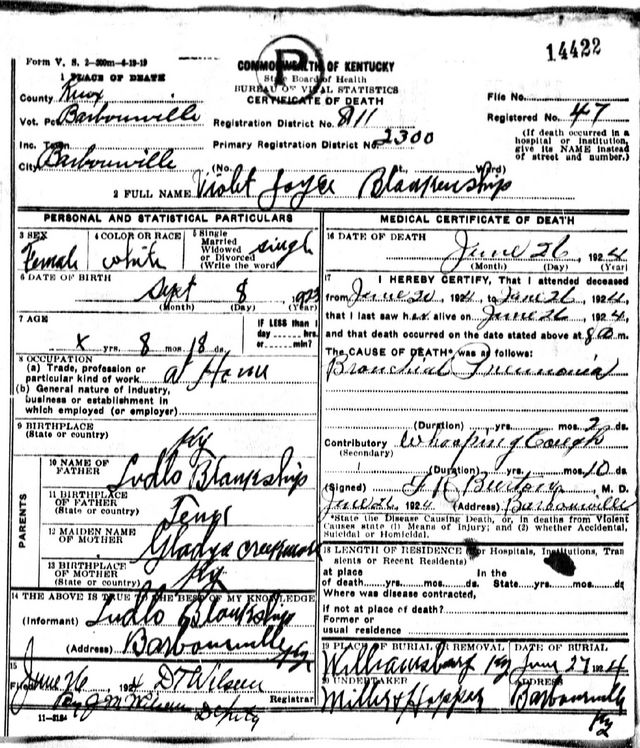 14422
Form V. S. 2-300m-6-19-19
COMMONWEALTH OF KENTUCKY
State Board of Health
BUREAU OF VITAL STATISTICS
CERTIFICATE OF DEATH
1 PLACE OF DEATH
County Knox
Vot. Pct Barbourville
Inc. Town
City Barbourville
File No.
Registration District No. 811
Registered No. 47
Primary Registration District No. 2300
(If death occurred in a
hospital or institution,
give its NAME instead
of street and number.)
(No. Ward)
2 FULL NAME Violet Joyce Blankenship
PERSONAL AND STATISTICAL PARTICULARS
3 SEX
Female
4 COLOR OR RACE
white
5 Single
Married
Widowed
or Divorced
(Write the word)
single
6 DATE OF BIRTH
Sept 8 1923
(Month) (Day) (Year)
7 AGE
x yrs. 8 mos. 18 ds.
IF LESS than 1
day hrs.
or min?
8 OCCUPATION
(a) Trade, profession or
particular kind of work at Home
(b) General nature of industry,
business or establishment in
which employed (or employer)
9 BIRTHPLACE
(State or country)
Ky
PARENTS
10 NAME OF
FATHER
Ludlo Blankship
11 BIRTHPLACE
OF FATHER
(State or country)
Tenn
12 MAIDEN NAME
OF MOTHER
Gladys Creekmore
13 BIRTHPLACE
OF MOTHER
(State or country)
Ky
14 THE ABOVE IS TRUE TO THE BEST OF MY KNOWLEDGE
(Informant) Ludlo Blankship
(Address) Barbourville Ky
15
Filed June 26 1924 D T Wilson
Registrar
By J M Wilson Deputy
11-3184
MEDICAL CERTIFICATE OF DEATH
16 DATE OF DEATH
June 26, 1924
(Month) (Day) (Year)
17 I HEREBY CERTIFY, That I attended deceased
from June 20, 1924, to June 26, 1924,
that I last saw her alive on June 26, 1924,
and that death occurred on the date stated above at 8 a m.
The CAUSE OF DEATH* was as follows:
Bronchial Pneumonia
(Duration) yrs. mos. 2 ds.
Contributory Whooping Cough
(Secondary)
(Duration) yrs. mos. 10 ds.
(Signed) Burton, M. D.
June 26, 1924 (Address) Barbourville
*State the Disease Causing Death, or, in deaths from Violent
Causes state (1) Means of Injury; and (2) whether Accidental,
Suicidal or Homicidal.
18 LENGTH OF RESIDENCE (For Hospitals, Institutions, Tran
sients or Recent Residents)
at place In the
of death yrs. mos. ds. State yrs. mos. ds.
Where was disease contracted,
if not at place of death?
Former or
usual residence
19 PLACE OF BURIAL OR REMOVAL
Williamsburg Ky
DATE OF BURIAL
June 27 1924
20 UNDERTAKER
Miller & Hopper
ADDRESS
Barbourville
Ky